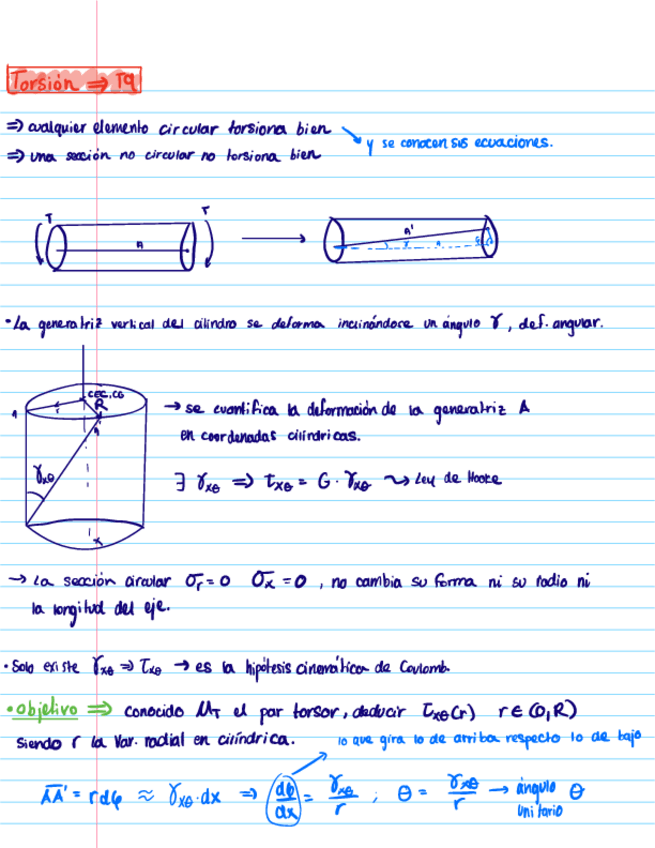 Torsión ⇒ T9
⇒ cualquier elemento circular torsiona bien
y se conocen sus ecuaciones.
⇒ una sección no circular no torsiona bien
T T
A A'
γ A
• La generatriz vertical del cilindro se deforma inclinándose un ángulo γ, def. angular.
CEC, CG
r R
A A'
→ se cuantifica la deformación de la generatriz A
en coordenadas cilíndricas.
γxθ
∃ γxθ ⇒ τxθ = G · γxθ ⤳ Ley de Hooke
x
→ La sección circular σr = 0 σx = 0, no cambia su forma ni su radio ni
la longitud del eje.
• Solo existe γxθ ⇒ τxθ → es la hipótesis cinemática de Coulomb.
• objetivo ⇒ conocido MT el par torsor, deducir τxθ(r) r ∈ (0,R)
siendo r la var. radial en cilíndrica.
lo que gira lo de arriba respecto lo de bajo
AA' = rdφ ≈ γxθ · dx ⇒ dφ/dx = γxθ/r ; θ = γxθ/r → ángulo θ
unitario